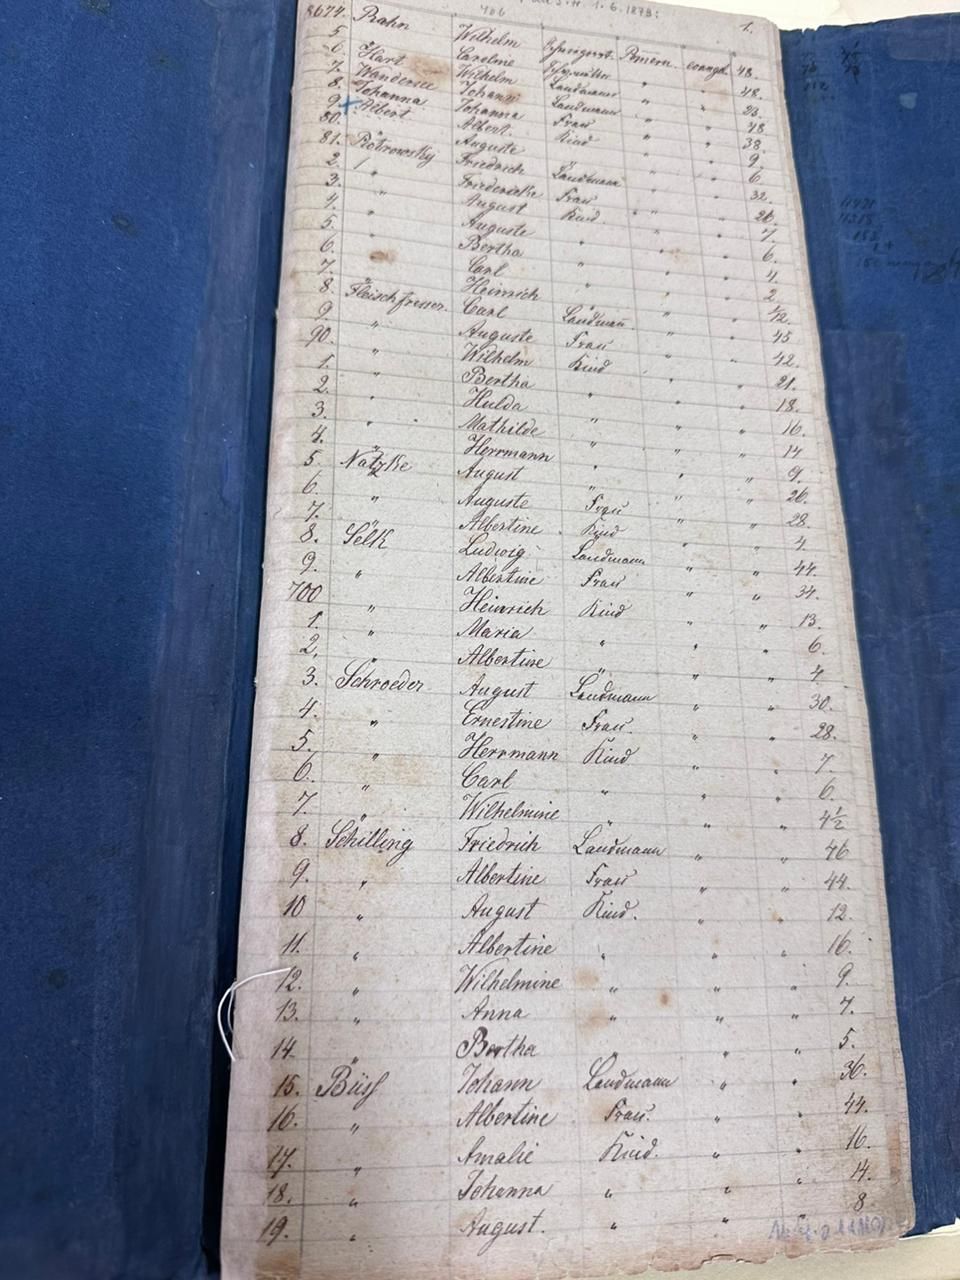 406 1.6.1873: 1.
8674. Rahn Wilhelm Pomern. evangl. 48.
5. " Caroline " " 48.
6. Hart Wilhelm Landmann " " 23.
7. Wandersee Johann Landmann " " 48
8. Johanna Johanna Frau " " 38.
9. Albert Albert Kind " " 9.
80. Auguste " " 6
81. Piotrowsky Friedrich Landmann " " 32.
2. " Friedericke Frau " " 26.
3. " August Kind " " 7.
4. " Auguste " " " 6.
5. " Bertha " " " 4.
6. " Carl " " " 2
7. " Heinrich " " " 1/12.
8. Fleischfresser. Carl Landmann " " 45
9. " Auguste Frau " " 42.
90. " Wilhelm Kind " " 21.
1. " Bertha " " " 18.
2. " Hulda " " " 16.
3. " Mathilde " " " 14
4. " Herrmann " " " 9.
5. Natzke August " " " 26.
6. " Auguste Frau " " 28.
7. " Albertine Kind " " 4.
8. Selk Ludwig Landmann " " 44.
9. " Albertine Frau " " 34.
700 " Heinrich Kind " " 13.
1. " Maria " " " 6.
2. " Albertine " " " 4
3. Schroeder August Landmann " " 30.
4. " Ernestine Frau " " 28.
5. " Herrmann Kind " " 7.
6. " Carl " " " 6.
7. " Wilhelmine " " " 4½
8. Schilling Friedrich Landmann " " 46
9. " Albertine Frau " " 44.
10 " August Kind. " " 12.
11. " Albertine " " " 16.
12. " Wilhelmine " " " 9.
13. " Anna " " " 7.
14. " Bertha " " 5.
15. Büss Johann Landmann " " 36.
16. " Albertine Frau. " " 44.
17. " Amalie Kind. " " 16.
18. " Johanna " " " 14.
19. " August. " " " 8